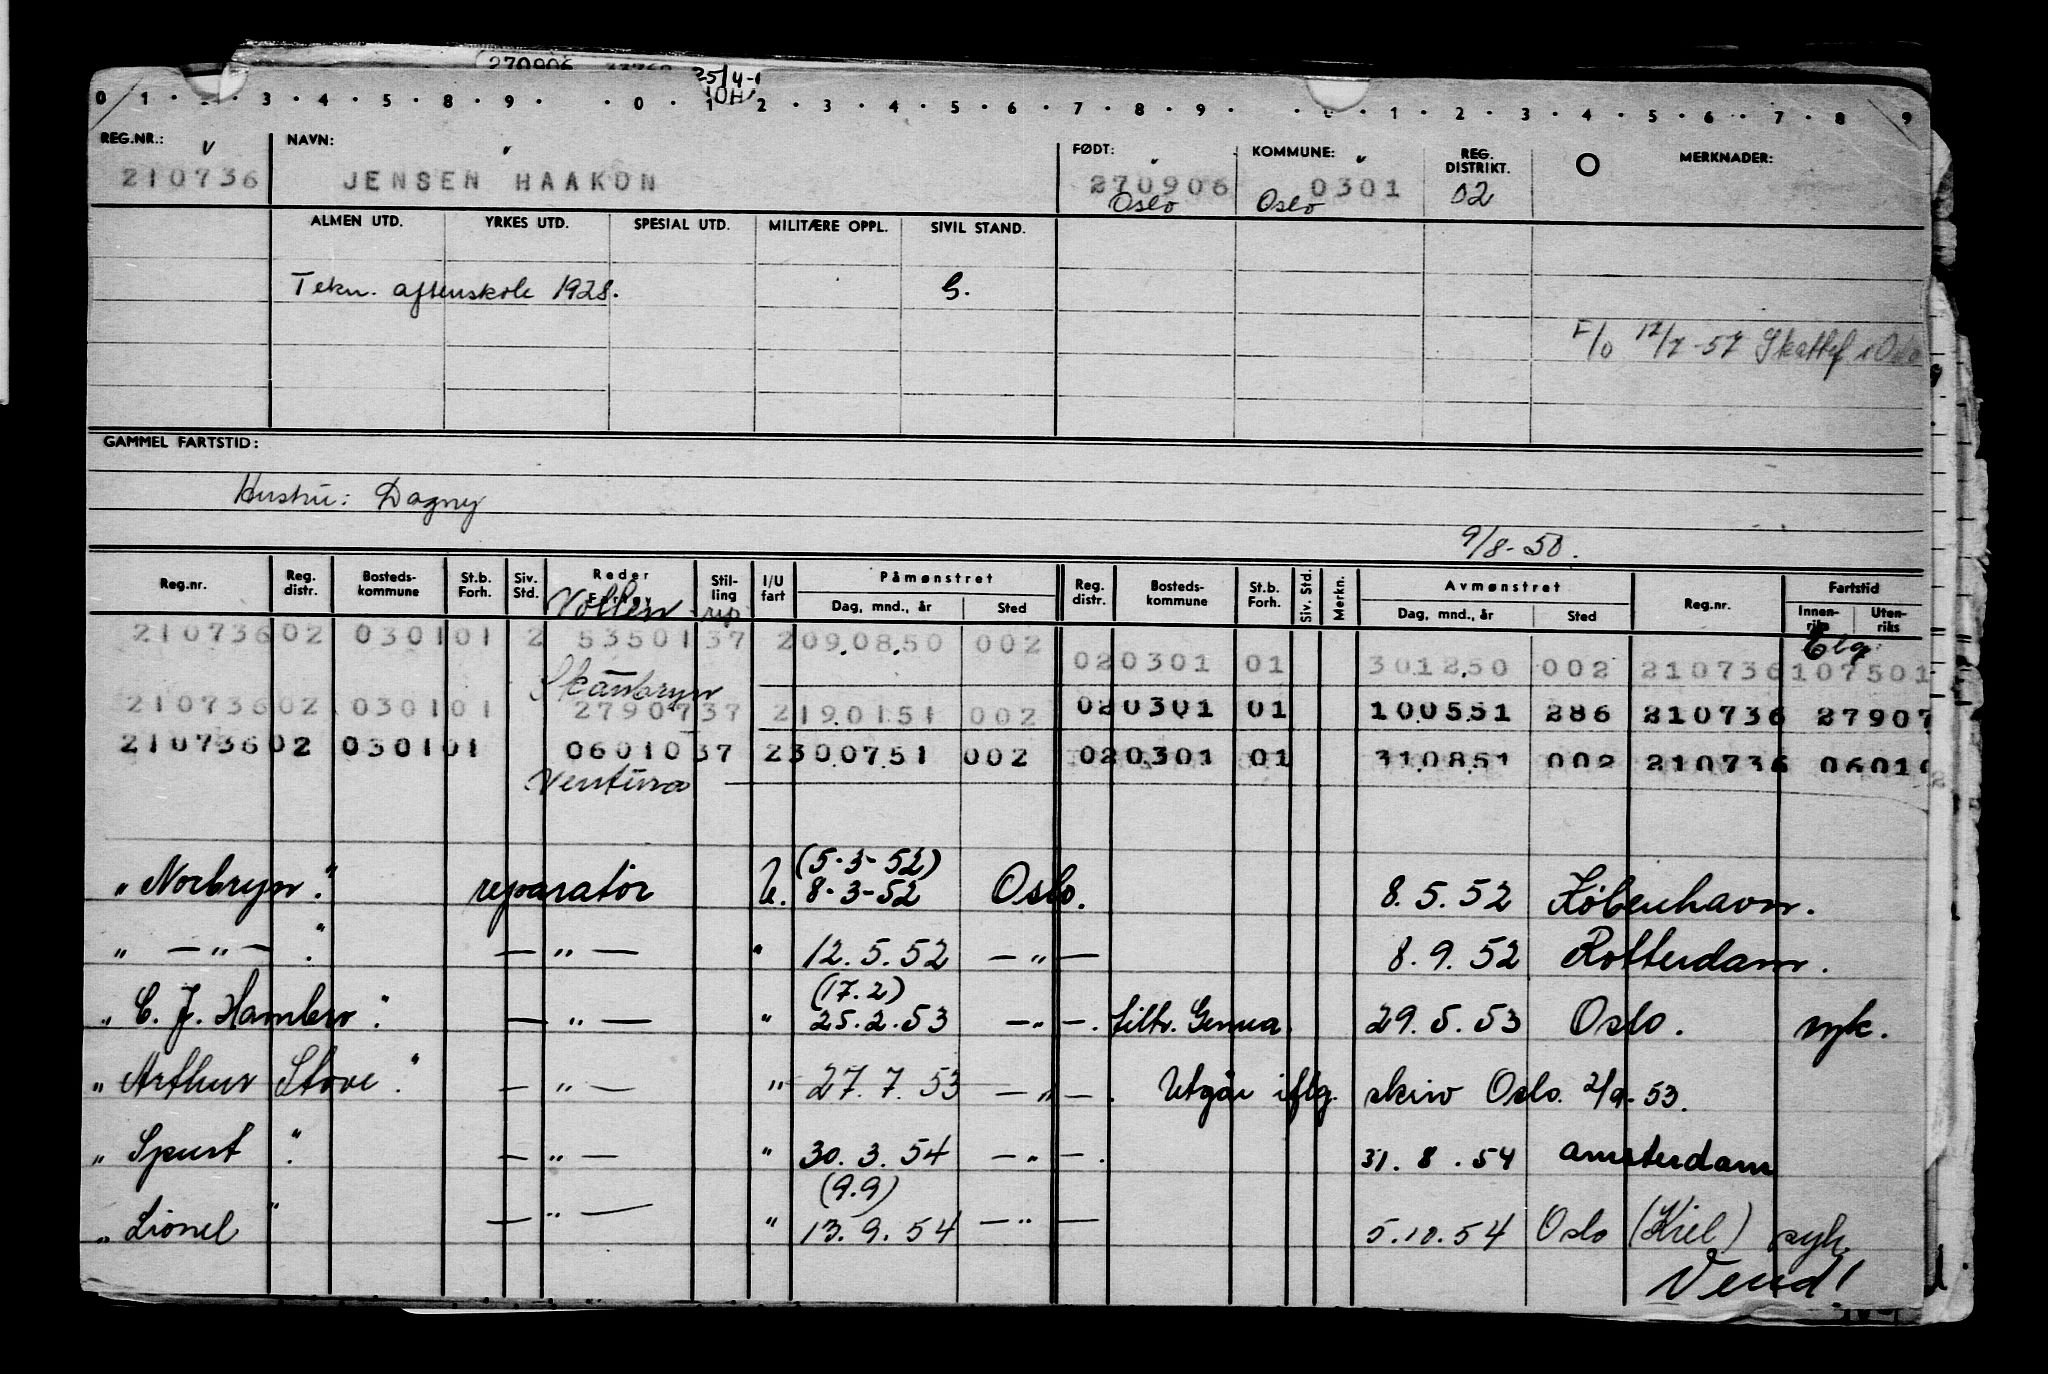 270906
25/4-
0 1 · · 3 · 4 · 5 · 8 · 9 · · 0 · 1 · 2 · 3 · 4 · 5 · 6 · 7 · 8 · 9 · · · 1 · 2 · 3 · 4 · 5 · 6 · 7 · 8 · 9
REG.NR.: NAVN: FØDT: KOMMUNE: REG. DISTRIKT. O MERKNADER:
210736 JENSEN HAAKON 270906 0301 02
Oslo Oslo
ALMEN UTD. YRKES UTD. SPESIAL UTD. MILITÆRE OPPL. SIVIL STAND.
Tekn. aftenskole 1928. G.
F/0 12/7-57 Skattef i Oslo
GAMMEL FARTSTID:
Hustru: Dagny
9/8-50.
Reg.nr. Reg. distr. Bosteds- kommune St.b. Forh. Siv. Std. Reder Stil- ling I/U fart Påmønstret Reg. distr. Bosteds- kommune St.b. Forh. Siv. Std. Merkn. Avmønstret Reg.nr. Fartstid
Dag, mnd., år Sted Dag, mnd., år Sted Innen- riks Uten- riks
Vollen rep
210736 02 0301 01 2 53501 37 2 09.08.50 002
02 0301 01 301250 002 210736 107501
Skånbryn
210736 02 0301 01 27907 37 2 190151 002 02 0301 01 100551 286 210736 27907
210736 02 0301 01 06010 37 2 300751 002 02 0301 01 310851 002 210736 0601
Ventura
(5-3-52)
"Norbryn." reparatør U. 8-3-52 Oslo. 8.5.52 København.
" — " — . " — " — " 12.5.52 — " — 8.9.52 Rotterdam.
(17.2)
"C. J. Hambro." — " — " 25.2.53 — " — . tiltr. Genua. 29.5.53 Oslo. syk.
"Arthur Stove." — " — " 27.7.53 — " — . Utgår iflg. skriv Oslo. 2/9-53.
"Spurt." — " — " 30.3.54 — " — . 31.8.54 Amsterdam
(9.9)
"Lionel" — " — " 13.9.54 — " — 5.10.54 Oslo (Kiel) syk.
Vend!